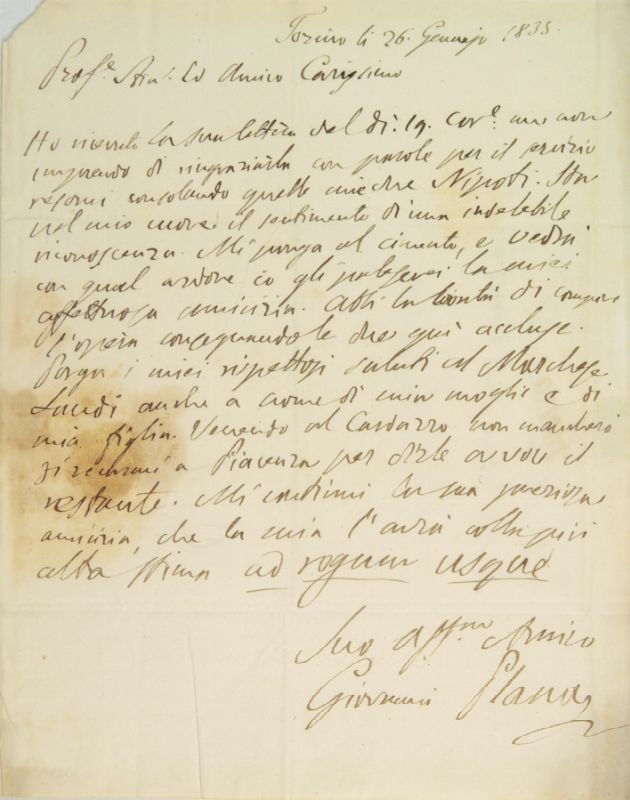 Torino li 26. Gennajo 1835.
Prof.e Sti.o ed Amico Carissimo
Ho ricevuto la sua lettera del dì. 19. Cor.e ma non
imprendo di ringraziarla con parole per il servizio
resomi consolando quelle mie due Nipoti. Sta
nel mio cuore il sentimento di una indelebile
riconoscenza. Mi ponga al cimento, e vedrà
con qual ardore io gli paleserei la mia
affettuosa amicizia. Abbi la bontà di compire
l'opera consegnando le due quì accluse.
Porga i miei rispettosi saluti al Marchese
Landi anche a nome di mia moglie e di
mia figlia. Venendo al Cardazzo non mancherò
di recarmi a Piacenza per dirle a voce il
restante. Mi continui la sua preziosa
amicizia, che la mia l'avrà colla più
alta stima ad rogum usque
Suo aff.mo Amico
Giovanni Plana